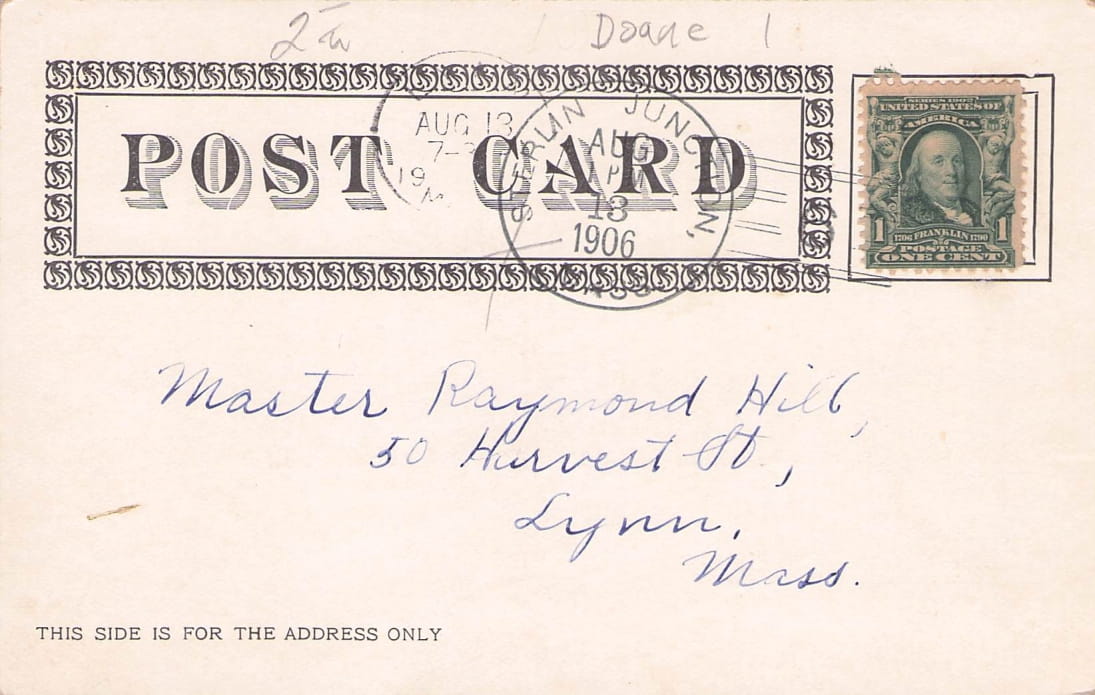 Doane 1
POST CARD
AUG 13
7-
19
STERLING JUNCTION,
AUG
1 PM
13
1906
MASS
SERIES 1902
UNITED STATES OF
AMERICA
1 1706 FRANKLIN 1790 1
POSTAGE
ONE CENT
Master Raymond Hill,
50 Harvest St,
Lynn,
Mass.
THIS SIDE IS FOR THE ADDRESS ONLY